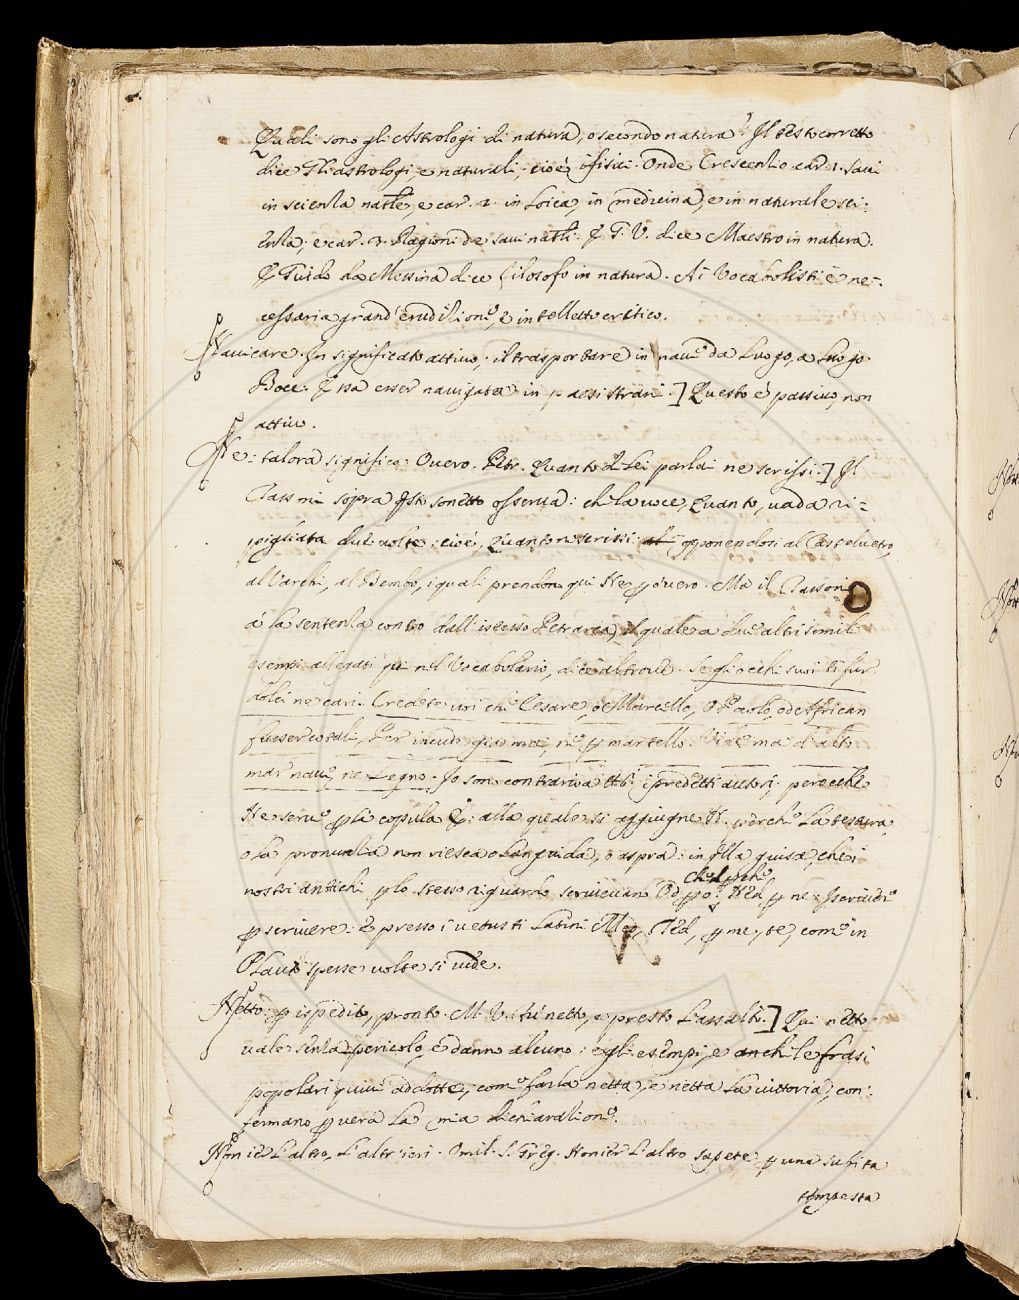 Quali sono gli Astrologi di natura, o secondo natura? Il testo corretto
dice Gli astrologi, e naturali, cioè i fisici. Onde Crescenzio car. 1. savi
in scienza natle, e car. 2. in Loica, in medicina, e in naturale sci:
enza; e car. 3. Ragioni de savi natli. E G. V. dice Maestro in natura.
E Guido da Messina dice filosofo in natura. Ai Vocabolisti è ne-
cessaria grand' erudizione, e intelletto critico.
Navicare. In significato attivo. il trasportare in nave da Luogo, a Luogo.
Bocc. E sia esser navigata in paesi strani.] Questo è passivo, non
attivo.
Ne: talora significa: Overo. Petr. Quanto di Lei parlai ne scrissi.] Il
Tassoni sopra qsto sonetto osserva: che la voce, Quanto, vada ri-
pigliata due volte: cioè, Quanto ne scrissi: opponendosi al Castelvetro,
al Varchi, al Bembo, i quali prendon qui Ne p overo. Ma il Tassoni
à la sentenza contro dall' istesso Petrarca, il quale a due altri simili
esempi allegati qui nel Vocabolario, dice altrove. Se gli occhi suoi ti fur
dolci ne cari. Credete voi che Cesare, o Marcello, O Paolo, od Affrican
fusser cotali, Per incude già mai, ne p martello. Vide mai d' alto
mar nave, ne Legno. Io son contrario a tti i predetti autori; perocche
Ne serve p la copula E: alla quale si aggiugne N. perche La tessura,
o la pronunzia non riesca o Languida, o aspra: in qlla guisa, che i
nostri antichi p lo stesso riguardo scrivevano Od p o: Ched p che, Ned p ne:
p scrivere: E presso i vetusti Latini Med, Ted, p me, te, come in
Plauto spesse volte si vede.
Netto: p ispedito, pronto. M. V. netto, e presto L'assalì.] Qui netto
vale senza pericolo, e danno alcuno: e gli esempi, e anch' le frasi
popolari quivi addotte, come farla netta, e netta La vittoria, con:
fermano p vera La mia dichiarazione.
Non ier L'altro, L'altr'ieri. Omil. S. Greg. Non ier L'altro sapete p una subita
tempesta